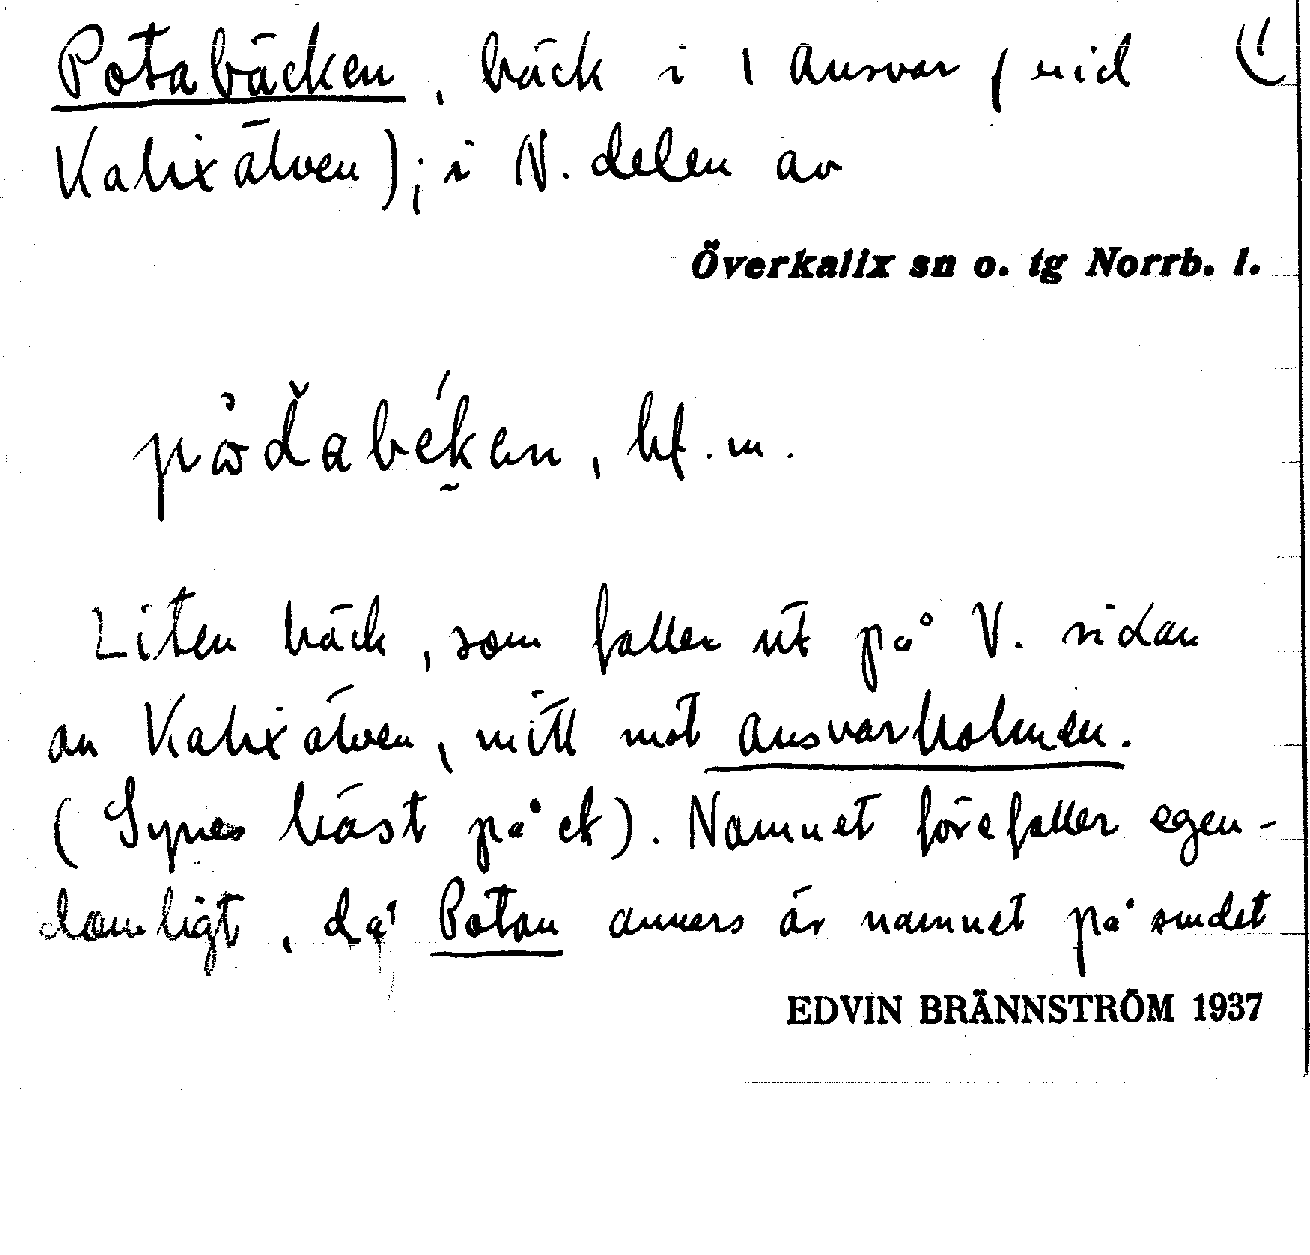 Potabäcken, bäck i 1 Ansvar (vid
Kalixälven); i N. delen av
Överkalix sn o. tg Norrb. l.
bf. m.
Liten bäck, som faller ut på V. sidan
av Kalixälven, mitt mot Ansvarholmen.
(Synes bäst på ek). Namnet förefaller egen-
domligt, då Potan annars är namnet på sundet
EDVIN BRÄNNSTRÖM 1937